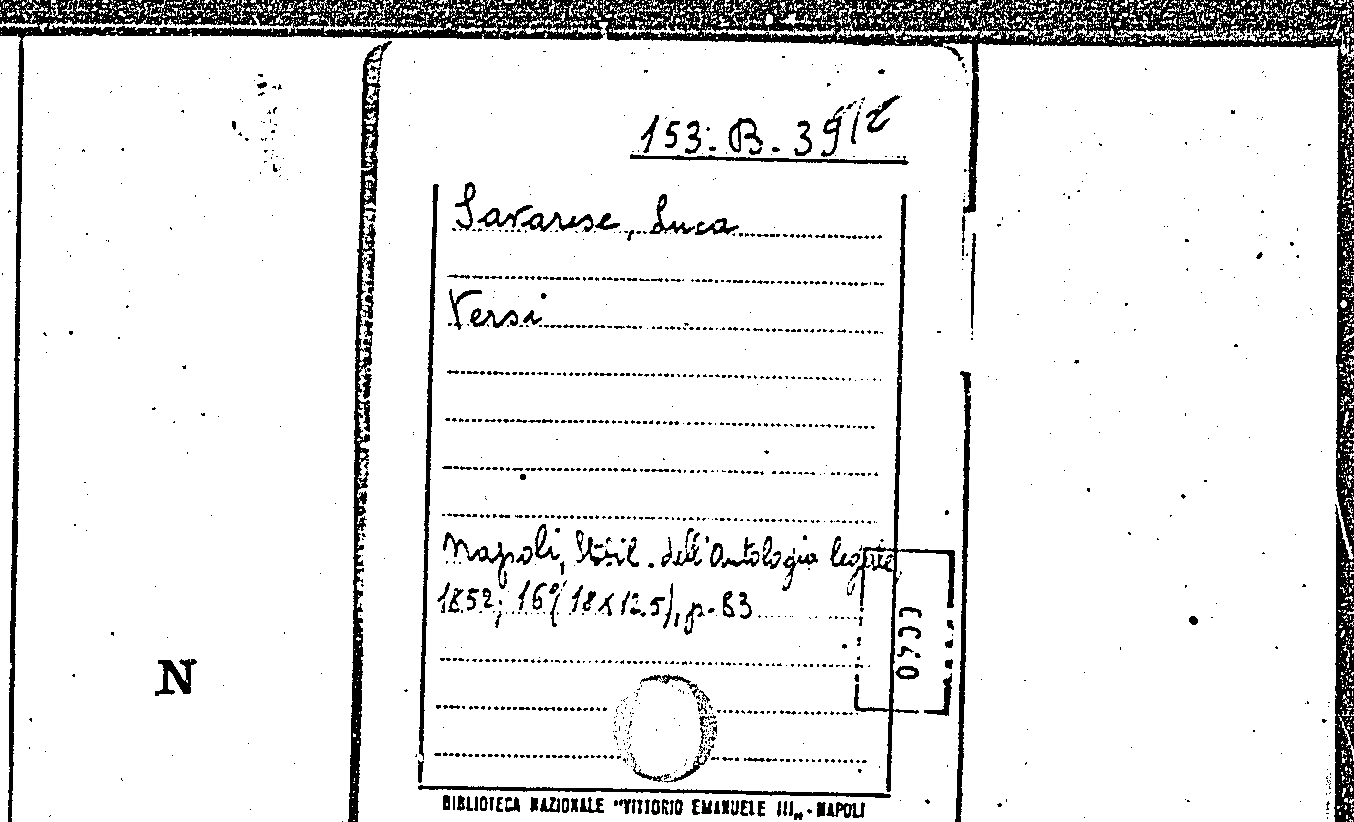 153. B. 39/2
Savarese, Luca
Versi
Napoli, Stabil. dell'Antologia legale,
1852; 16° (18x12.5), p. 83
N
BIBLIOTECA NAZIONALE "VITTORIO EMANUELE III„ - NAPOLI